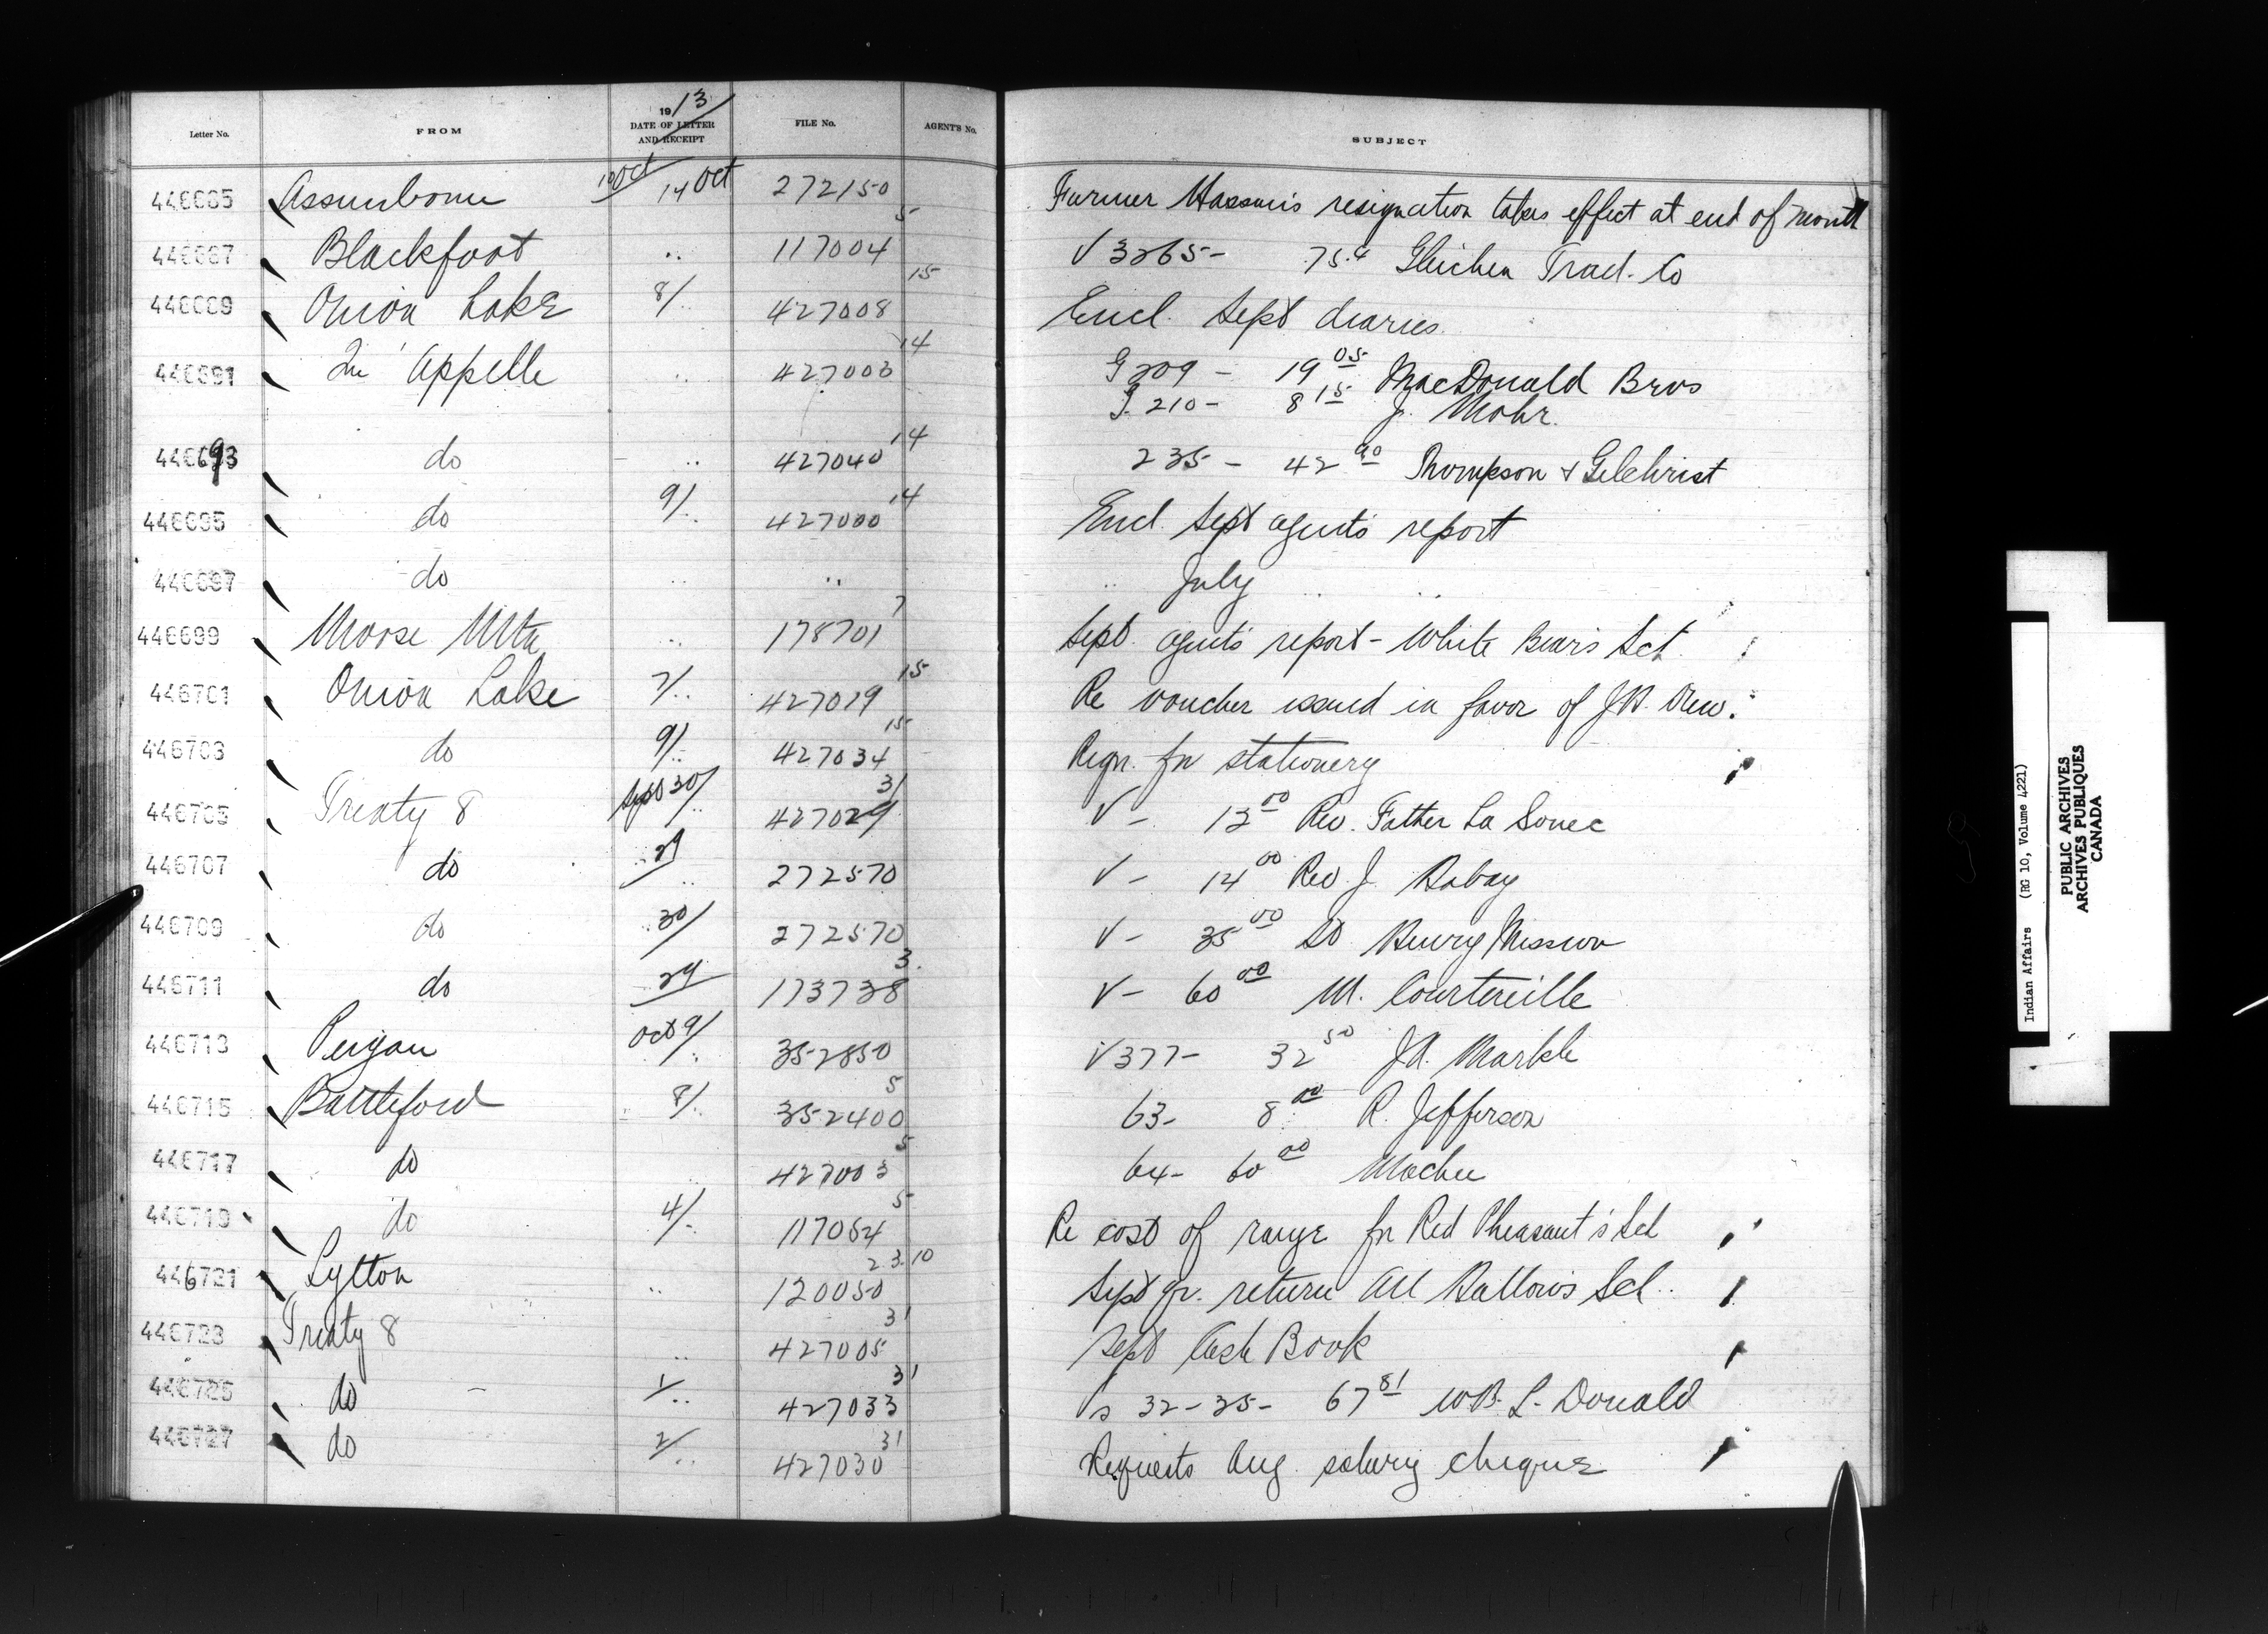 1913
Letter No. FROM DATE OF LETTER AND RECEIPT FILE No. AGENT'S No. SUBJECT
446685 Assiniboine 10 Oct / 14 Oct 272150 Farmer resignation takes effect at end of month
446687 Blackfoot .. 117004 5 V 3265- Gleichen Trad. Co
446689 Onion Lake 8/.. 427008 15 Encl. Sept diaries
446691 Qu'Appelle .. 427003 14 G 209 - 19 05 MacDonald Bros
G. 210 - 8 15 J. Mohr.
446693 do .. 427040 14 235 - 42 90 Thompson & Gilchrist
446695 do 9/.. 427000 14 Encl. Sept agents report
446697 do .. .. .. July .. ..
446699 Moose Mtn .. 178701 7 Sept. agents report - White Bear's Sch.
446701 Onion Lake 7/.. 427019 15 Re voucher issued in favor of
446703 do 9/.. 427034 15 Reqn. for stationery
446705 Treaty 8 Sept 30/.. 427029 31 V - 13 00 Rev. Father
446707 do .. 29/.. 272570 V - 14 00 Rev. J.
446709 do .. 30/ 272570 V - 35 00 St Henry Mission
446711 do 29/ 173738 3. V - 60 00 M. Courtereille
446713 Peigan Oct 9/.. 352850 V 377 - 32 50 J.A. Markle
446715 Battleford 8/.. 352400 5 63 - 8 00 R. Jefferson
446717 do .. 427003 5 64 - 60 00
446719 do 4/.. 117054 5 Re cost of range for Red Pheasant's Sch
446721 Lytton .. 120050 23.10 Sept qr. return All Hallows Sch..
446723 Treaty 8 .. 427005 31 Sept Cash Book
446725 do - 1/.. 427033 31 Vs 32-35- 67 81 W.B. L. Donald
446727 do 2/.. 427030 31 Requests Aug. salary cheque
Indian Affairs (RG 10, Volume 4221)
PUBLIC ARCHIVES
ARCHIVES PUBLIQUES
CANADA